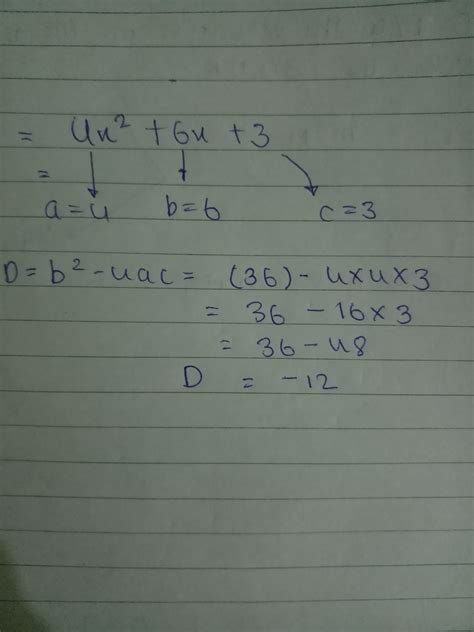 = 4x² + 6x + 3
=
a = 4 b = 6 c = 3
D = b² - 4ac = (36) - 4×4×3
= 36 - 16×3
= 36 - 48
D = -12